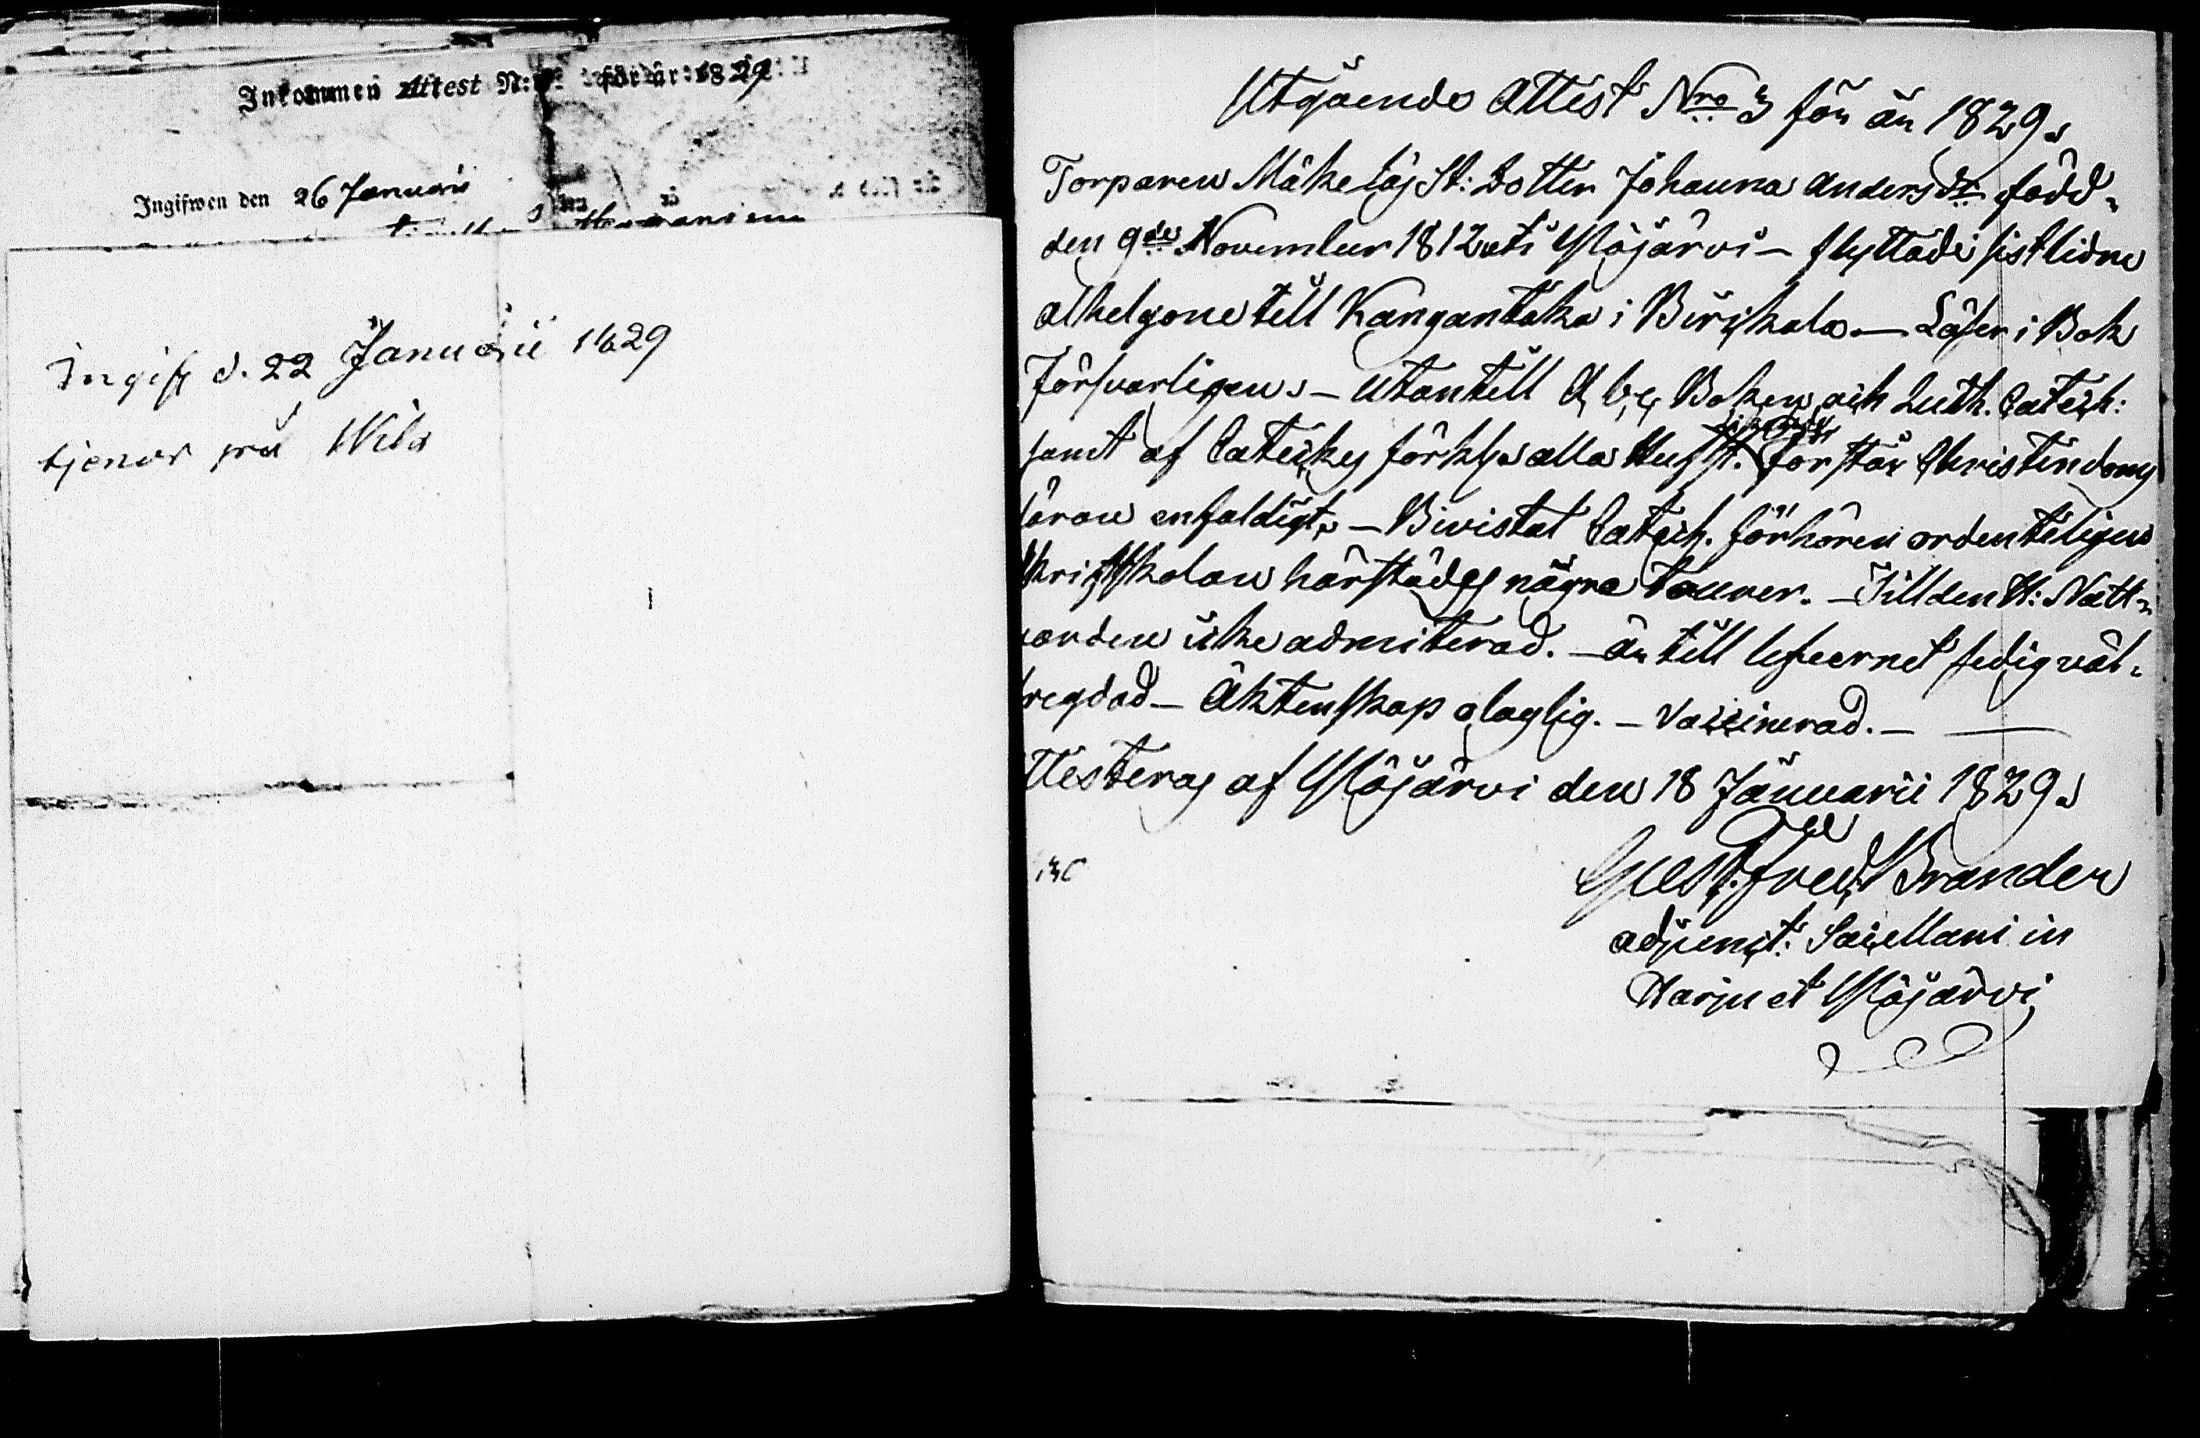 Inkommen Attest N:o för år 1829
Ingifwen den 26 Januarii
Ingif d. 22 Januarii 1829
tjenar på Wila
Utgående Attest Nro 3 för år 1829.
Torparen Mäkeläs St: Dotter Johanna Andersdtr född
den 9de November 1812 uti Ylöjärvi – flyttade sistlidne
alhelgone till Kangantaka i Birckala – Läser i Bok
försvarligen – Utantill A, b, c, Boken och Luth. Catech:
samt af Cateches förkl. alla Hufst. förstår Christendoms
läran enfaldigt. – Bivistat Catech. förhören ordenteligen
skriftskolan härstädes några Tourer. – Till den H: Natt-
varden icke admitterad. – är till lefvernet sedig väl-
fregdad – Äktenskap olaglig. – Vaccinerad. –
ttesteras af Ylöjärvi den 18 Januarii 1829.
Gust. Fred. Brander
adjunct: Sacellani in
Harju et Ylöjärvi